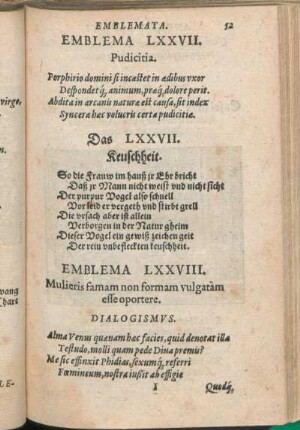 EMBLEMATA. 52
EMBLEMA LXXVII.
Pudicitia.
Porphirio domini si incæstet in ædibus vxor
Despondet q́, animum, præq́, dolore perit.
Abdita in arcanis naturæ est causa, sit index
Syncera hæc volucris certa pudicitiæ.
Das LXXVII.
Keuschheit.
So die Frauw im hauß jr Ehr bricht
Daß jr Mann nicht weist vnd nicht sicht
Der purpur Vogel also schnell
Vor leid er vergeth vnd stirbt grell
Die vrsach aber ist allein
Verborgen in der Natur gheim
Dieser Vogel ein gewiß zeichen geit
Der rein vnbefleckten keuschheit.
EMBLEMA LXXVIII.
Mulieris famam non formam vulgatàm
esse oportere.
DIALOGISMVS.
Alma Venus quænam hæc facies, quid denotat illa
Testudo, molli quam pede Diua premis?
Me sic effinxit Phidias, sexumq́, referri
Fœmineum, nostra iussit ab effigie
I Quodq́,
virge,